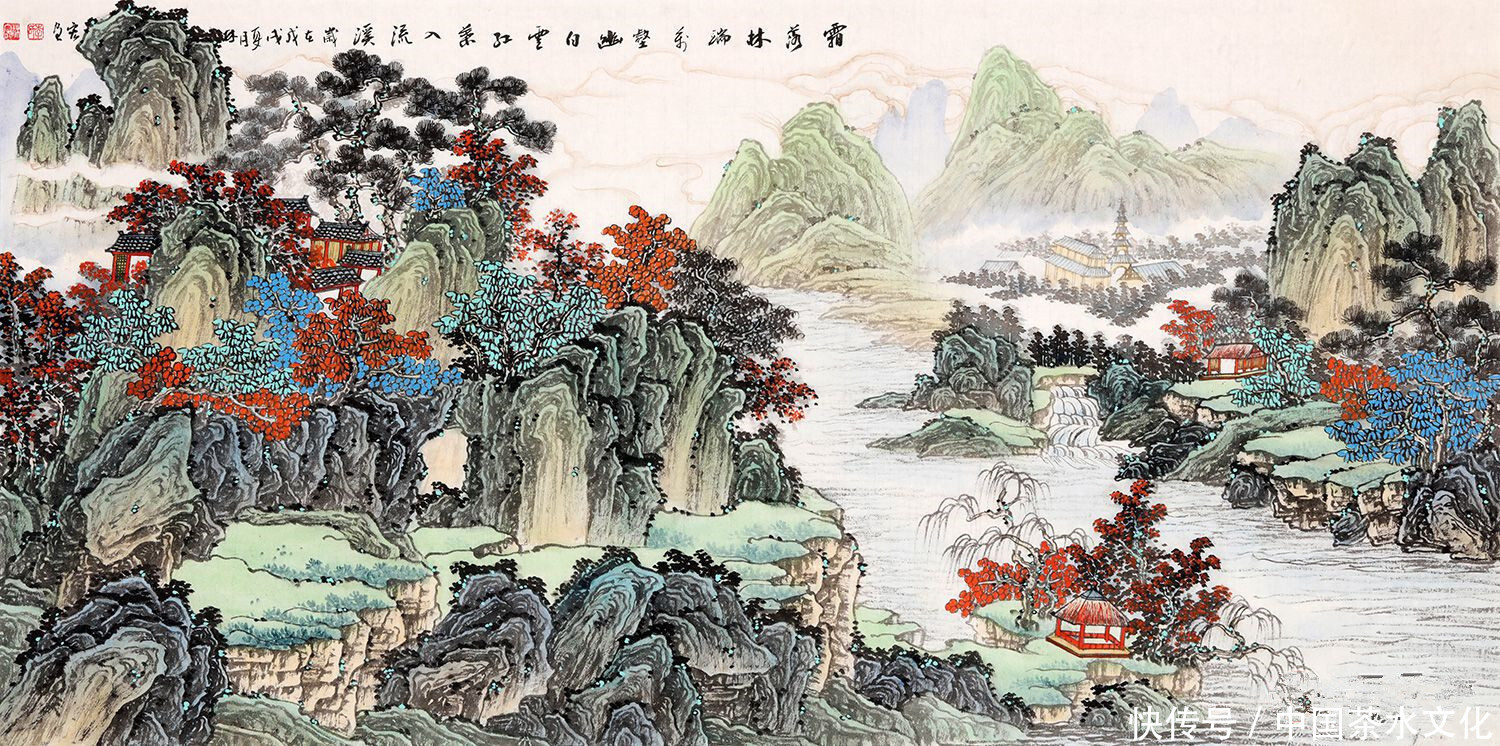 霜落林端萬壑幽白雲紅葉入流溪歲在戊戌夏月
快传号 / 中国茶水文化